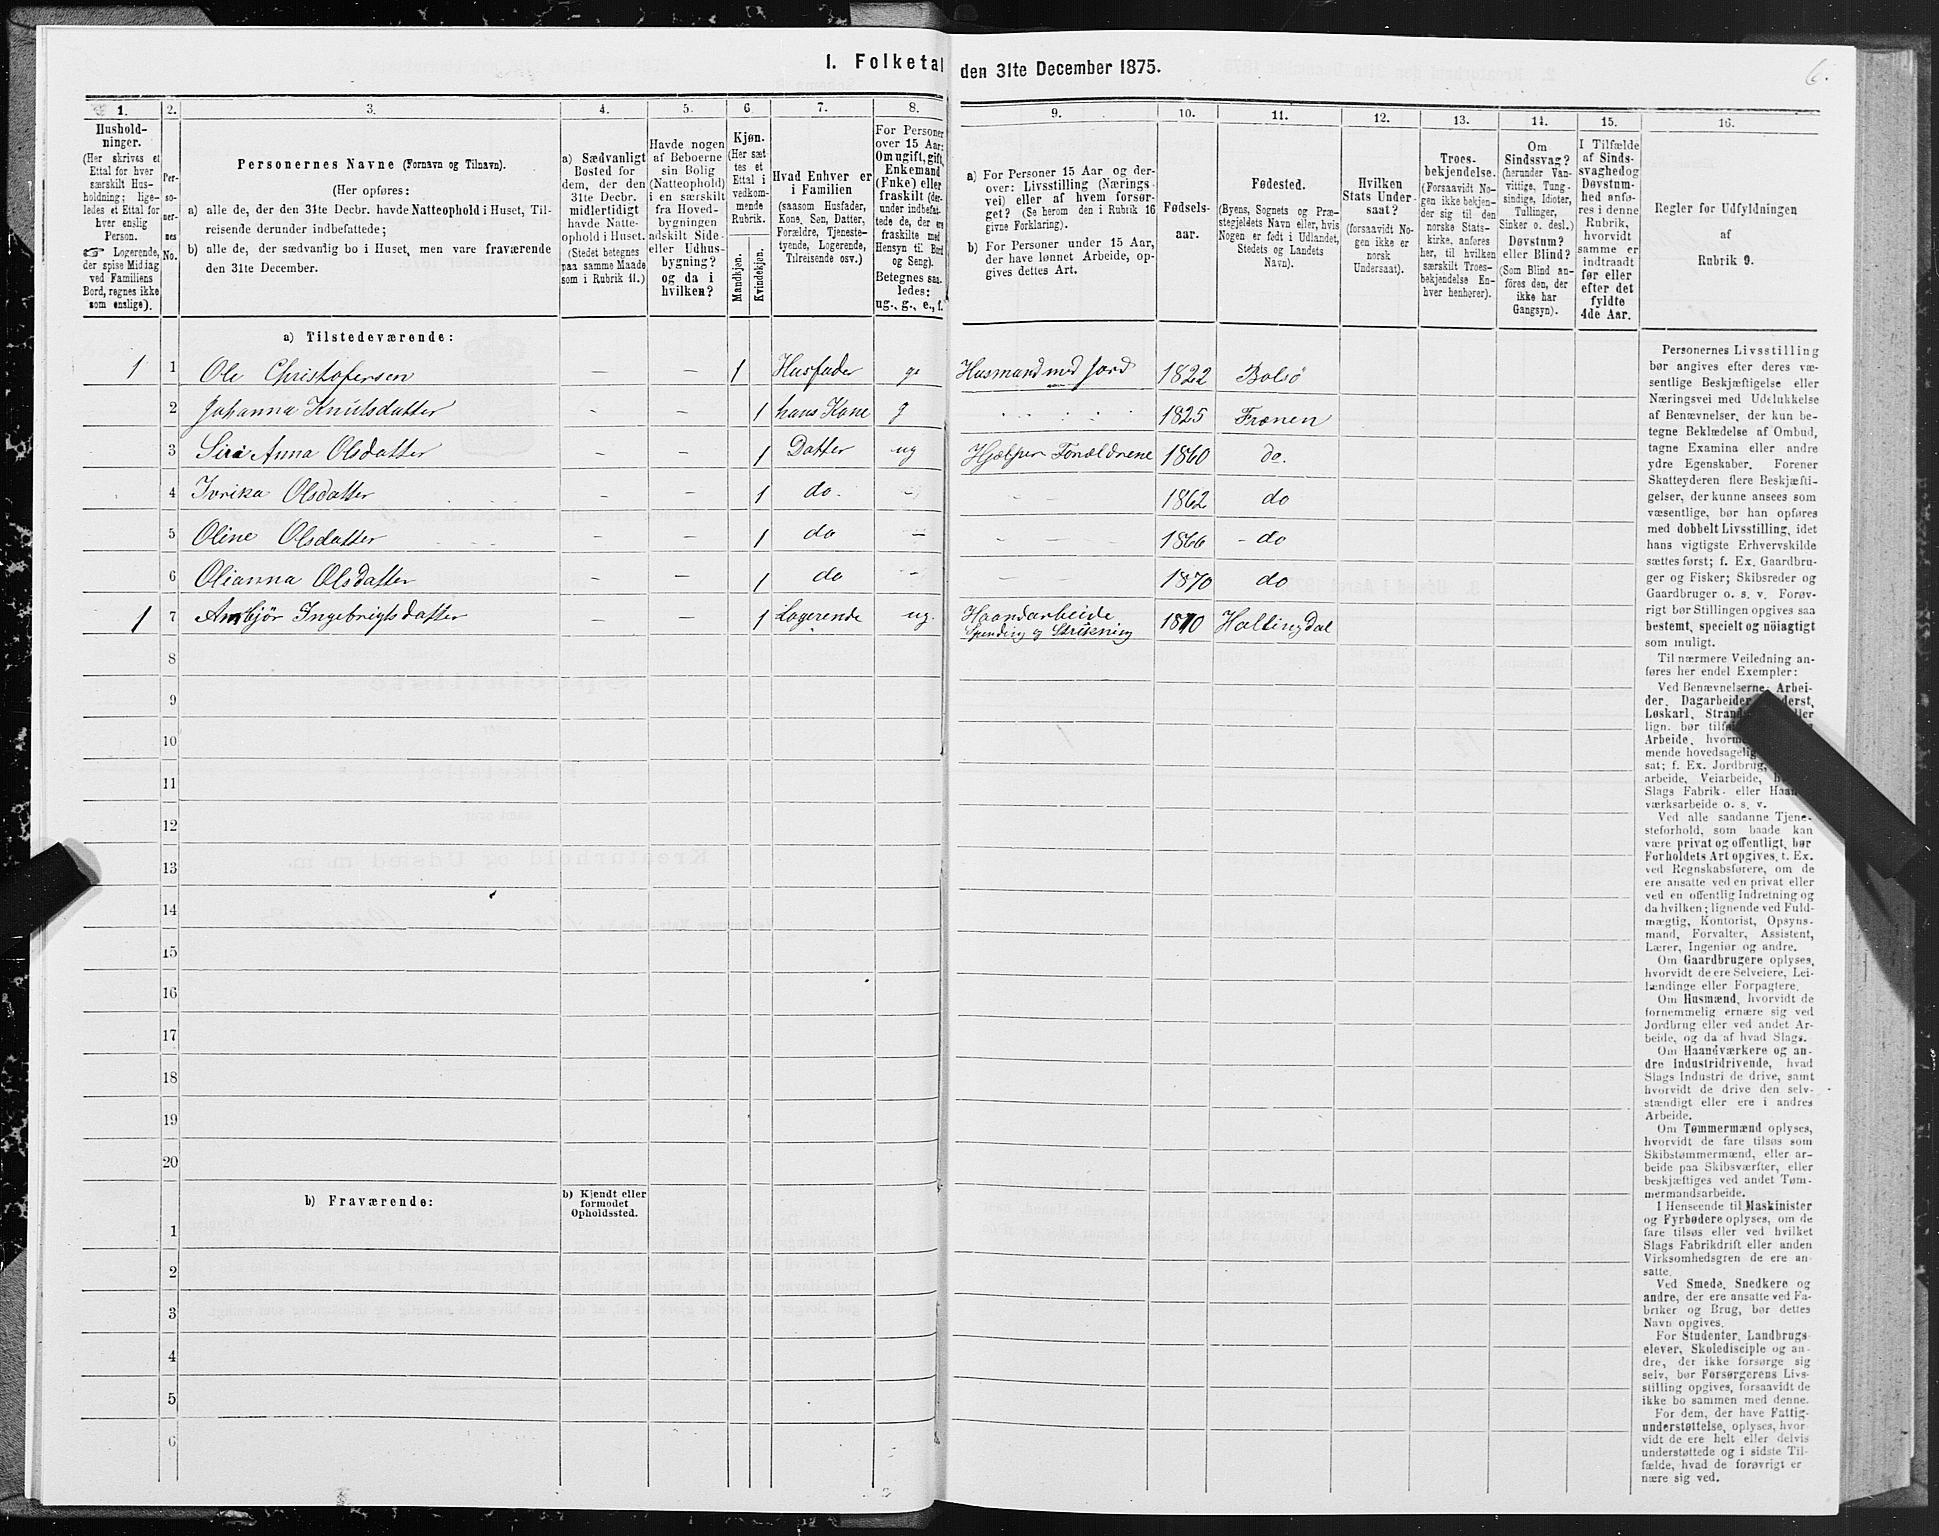 1. Folketal den 31te December 1875.
6.
1.
2.
3.
4.
5.
6
7.
8.
9.
10.
11.
12.
13.
14.
15.
16.
Hushold-
ninger.
(Her skrives et
Ettal for hver
særskilt Hus-
holdning; lige-
ledes et Ettal for
hver enslig
Person.
☞ Logerende,
der spise Middag
ved Familiens
Bord, regnes ikke
som enslige).
Per-
so-
ner-
nes
No.
Personernes Navne (Fornavn og Tilnavn).
(Her opføres:
a) alle de, der den 31te Decbr. havde Natteophold i Huset, Til-
reisende derunder indbefattede;
b) alle de, der sædvanlig bo i Huset, men vare fraværende
den 31te December.
a) Sædvanligt
Bosted for
dem, der den
31te Decbr.
midlertidigt
havde Natte-
ophold i Huset.
(Stedet betegnes
paa samme Maade
som i Rubrik 11.)
Havde nogen
af Beboerne
sin Bolig
(Natteophold)
i en særskilt
fra Hoved-
bygningen
adskilt Side-
eller Udhus-
bygning?
og da i
hvilken?
Kjøn.
(Her sæt
tes et
Ettal i
vedkom-
mende
Rubrik.
Mandkjøn.
Kvindekjøn.
Hvad Enhver er
i Familien
(saasom Husfader,
Kone, Søn, Datter,
Forældre, Tjeneste-
tyende, Logerende,
Tilreisende osv.)
For Personer
over 15 Aar:
Om ugift, gift,
Enkemand
(Enke) eller
fraskilt (der-
under indbefat-
tede de, der ere
fraskilte med
Hensyn til Bord
og Seng).
Betegnes saa-
ledes:
ug., g., e., f.
a) For Personer 15 Aar og der-
over: Livsstilling (Nærings-
vei) eller af hvem forsør-
get? (Se herom den i Rubrik 16
givne Forklaring).
b) For Personer under 15 Aar,
der have lønnet Arbeide, op-
gives dettes Art.
Fødsels-
aar.
Fødested.
(Byens, Sognets og Præ-
stegjeldets Navn eller, hvis
Nogen er født i Udlandet,
Stedets og Landets
Navn).
Hvilken
Stats Under-
saat?
(forsaavidt No-
gen ikke er
norsk
Undersaat).
Troes-
bekjendelse.
(Forsaavidt No-
gen ikke bekjen-
der sig til den
norske Stats-
kirke, anføres
her, til hvilken
særskilt Troes-
bekjendelse En-
hver henhører).
Om
Sindssvag?
(herunder Van-
vittige, Tung-
sindige, Idioter,
Tullinger,
Sinker o. desl.)
Døvstum?
eller Blind?
(Som Blind an-
føres den, der
ikke har
Gangsyn).
I Tilfælde
af Sinds-
svaghed og
Døvstum-
hed anfø-
res i denne
Rubrik,
hvorvidt
samme er
indtraadt
før eller
efter det
fyldte
4de Aar.
Regler for Udfyldningen
af
Rubrik 9.
a) Tilstedeværende:
1 1 Ole Christofersen – – 1 Husfader g Husmand med Jord 1822 Bolsø
2 Johanna Knutsdatter – – 1 hans Kone g 1825 Frænen
3 Siri Anna Olsdatter – – 1 Datter ug Hjælper Forældrene 1860 do.
4 Ivrika Olsdatter – – 1 do. – – – 1862 do
5 Oline Olsdatter – – 1 do – – – – 1866 – do
6 Olianna Olsdatter – – 1 do – – – 1870 do
1 7 Ambjør Ingebrigtsdatter – – 1 Logerende ug. Haandarbeide
Spinding og Strikning Hallingdal
8
9
10
11
12
13
14
15
16
17
18
19
20
b) Fraværende:
b) Kjendt eller
formodet
Opholdssted.
1
2
3
4
5
6
Personernes Livsstilling
bør angives efter deres væ-
sentlige Beskjæftigelse eller
Næringsvei med Udelukkelse
af Benævnelser, der kun be-
tegne Beklædelse af Ombud,
tagne Examina eller andre
ydre Egenskaber. Forener
Skatteyderen flere Beskjæfti-
gelser, der kunne ansees som
væsentlige, bør han opføres
med dobbelt Livsstilling, idet
hans vigtigste Erhvervskilde
sættes først; f. Ex. Gaardbru-
ger og Fisker; Skibsreder og
Gaardbruger o. s. v. Forøv-
rigt bør Stillingen opgives saa
bestemt, specielt og nöiagtigt
som muligt.
Til nærmere Veiledning an-
føres her endel Exempler:
Ved Benævnelserne: Arbei-
der, Dagarbeider,
Løskarl,
lign. bør
Arbeide,
mende hovedsagelig
sat; f. Ex. Jordbrug,
arbeide, Veiarbeide,
Slags Fabrik- eller Haand-
værksarbeide o. s. v.
Ved alle saadanne Tjene-
steforhold, som baade kan
være privat og offentligt, bør
Forholdets Art opgives, f. Ex.
ved Regnskabsførere, om de
ere ansatte ved en privat eller
ved en offentlig Indretning og
da hvilken; lignende ved Fuld-
mægtig, Kontorist, Opsyns-
mand, Forvalter, Assistent,
Lærer, Ingeniør og andre.
Om Gaardbrugere oplyses,
hvorvidt de ere Selveiere, Lei-
lændinge eller Forpagtere.
Om Husmænd, hvorvidt de
fornemmelig ernære sig ved
Jordbrug eller ved andet Ar-
beide, og da af hvad Slags.
Om Haandværkere og an-
dre Industridrivende, hvad
Slags Industri de drive, samt
hvorvidt de drive den selv-
stændigt eller ere i andres
Arbeide.
Om Tømmermænd oplyses,
hvorvidt de fare tilsøs som
Skibstømmermænd, eller ar-
beide paa Skibsværfter, eller
beskjæftiges ved andet Tøm-
mermandsarbeide.
I Henseende til Maskinister
og Fyrbødere oplyses, om de
fare tilsøs eller ved hvilket
Slags Fabrikdrift eller anden
Virksomhedsgren de ere an-
satte.
Ved Smede, Snedkere og
andre, der ere ansatte ved Fa-
briker og Brug, bør dettes
Navn opgives.
For Studenter, Landbrugs-
elever, Skoledisciple og an-
dre, der ikke forsørge sig
selv, bør Forsørgerens Livs-
stilling opgives, forsaavidt de
ikke bo sammen med denne.
For dem, der have Fattig-
understøttelse, oplyses, hvor-
vidt de ere helt eller delvis
understøttede og i sidste Til-
fælde, hvad de forøvrigt er
nære sig ved.